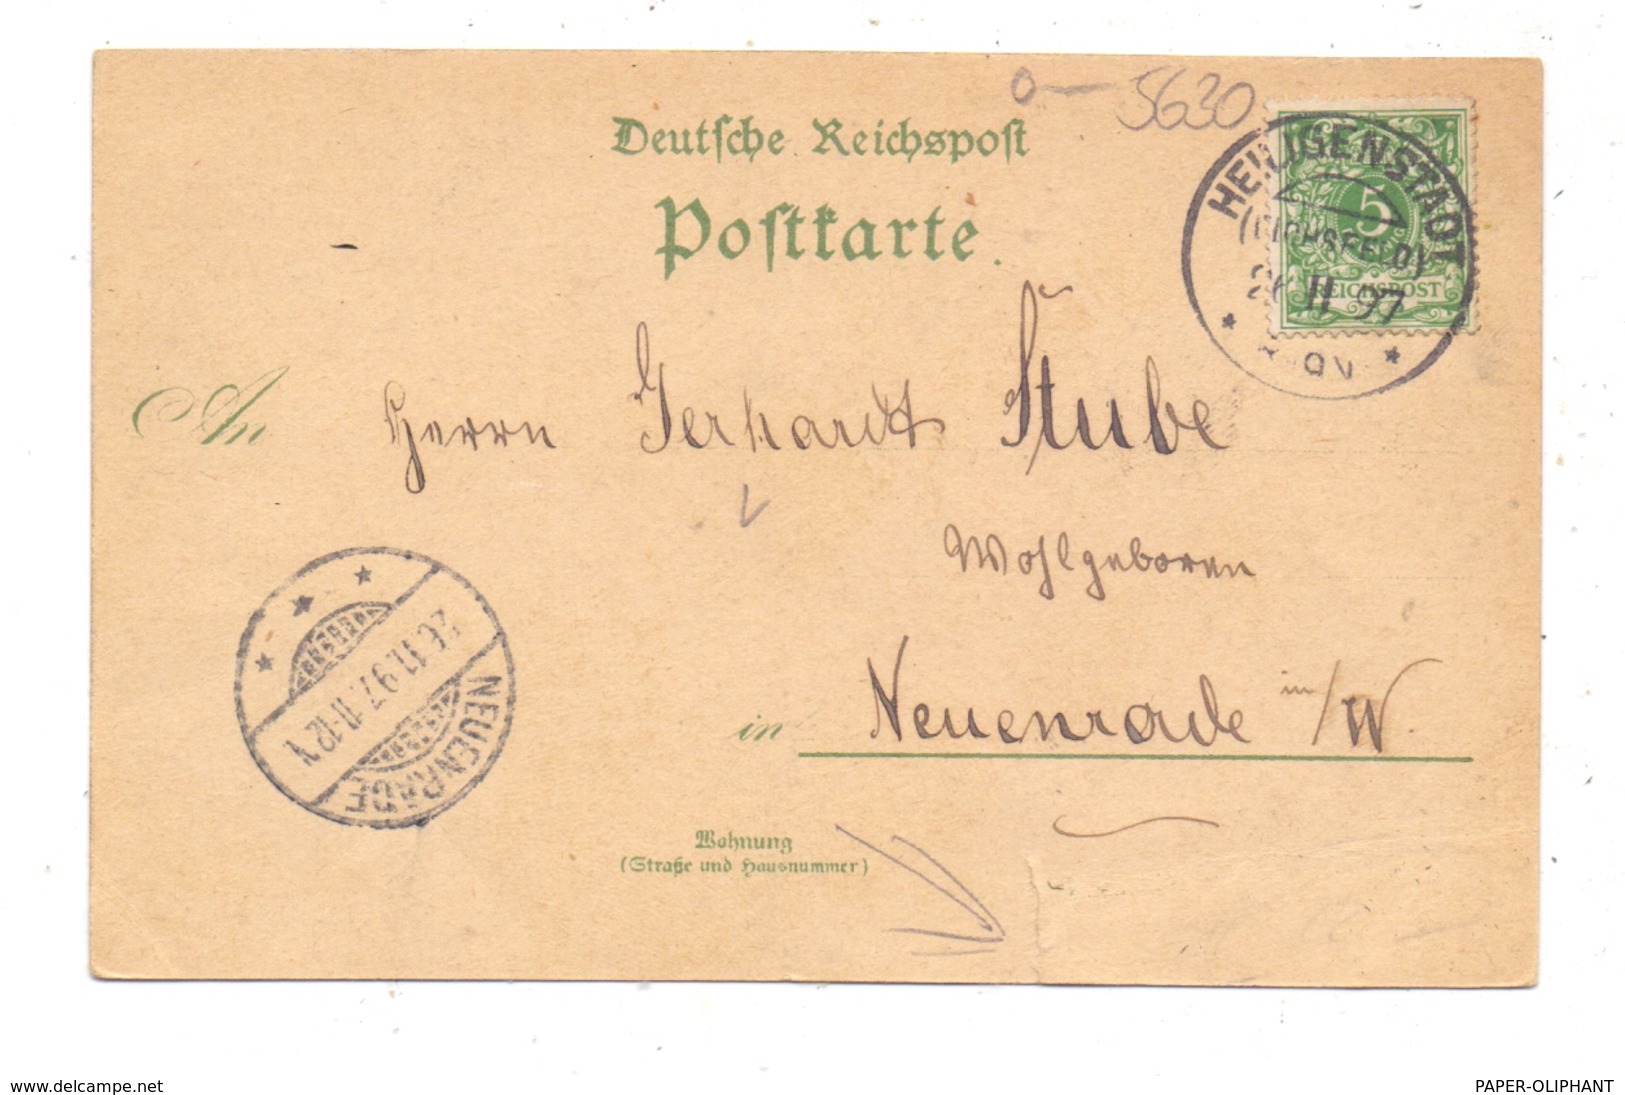 o — 5630
Deutsche Reichspost
Postkarte
HEILIGENSTADT
(EICHSFELD)
26 11 97
5
REICHSPOST
An
Herrn Gerhardt Stube
Wohlgeboren
in Neuenrade in/W.
NEUENRADE
26.11.97. 11-12V.
Wohnung
(Straße und Hausnummer)
www.delcampe.net
PAPER-OLIPHANT